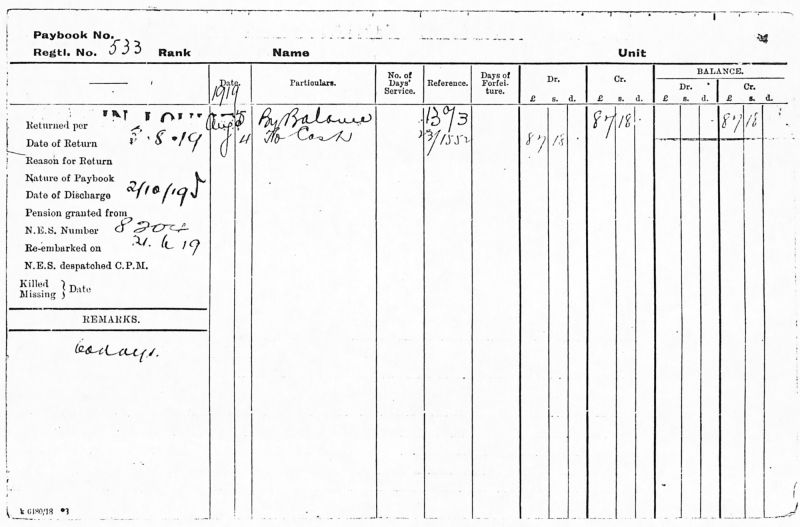 Paybook No.
Regtl. No. 533 Rank Name Unit
Date. Particulars. No. of Days' Service. Reference. Days of Forfeiture. Dr. Cr. BALANCE.
Dr. Cr.
£ s. d. £ s. d. £ s. d. £ s. d.
1919
Returned per
Aug 5 By Balance 87 18 87 18
Date of Return 5.8.19
4 To Cash 23/1552 87 18
Reason for Return
Nature of Paybook
Date of Discharge 2/10/19
Pension granted from
N.E.S. Number 8204
Re-embarked on 21.6.19
N.E.S. despatched C.P.M.
Killed
Missing } Date
REMARKS.
60 days.
6480/18